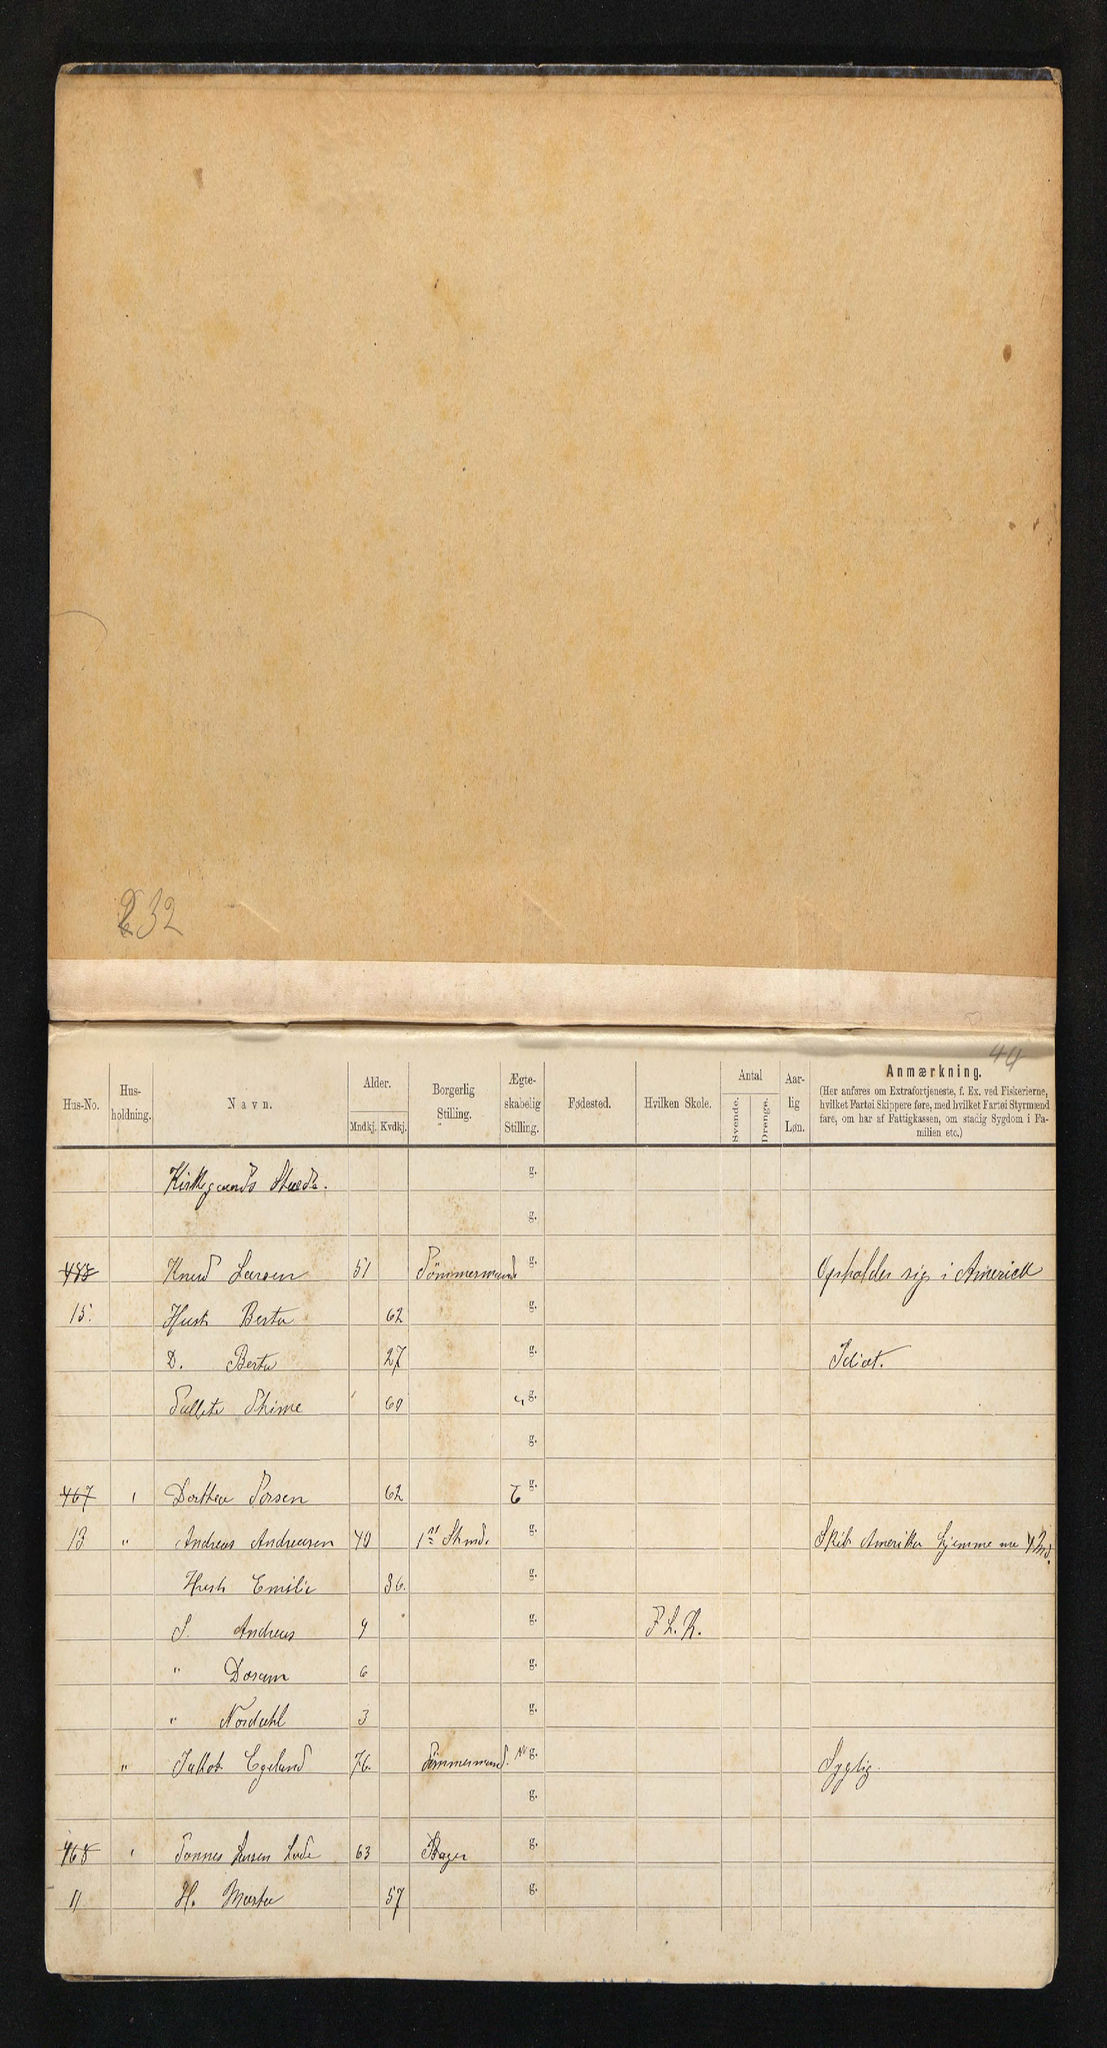 232
44
Hus-No. Hus-holdning. Navn. Alder. Mndkj. Kvdkj. Borgerlig Stilling. Ægte-skabelig Stilling. Fødested. Hvilken Skole. Antal Svende. Drenge. Aar-lig Løn. Anmærkning.
(Her anføres om Extrafortjeneste, f. Ex. ved Fiskerierne,
hvilket Fartøi Skippere føre, med hvilket Fartøi Styrmænd
fare, om har af Fattigkassen, om stadig Sygdom i Fa-
milien etc.)
Kirkegaards Stræde. g.
g.
488 Knud Larsen 51 Tömmermand g. Opholder sig i Americk
15. Hust. Berta 62 g.
D. Berta 27 g. Idiot.
Thime 60 g.
g.
467 Dorthea 62 E g.
13 " Andreas Andreasen 40 g. Skib Amerika hjemme
Hust Emilie 36. g.
S. Andreas 9 g. F. L. R.
" 6 g.
" Nordahl 3 g.
" Jakob Egeland 76. Tömmermand. g. Syglig.
g.
468 Tønnes Larsen Lode 63 Bager g.
11 H. Marta 57 g.